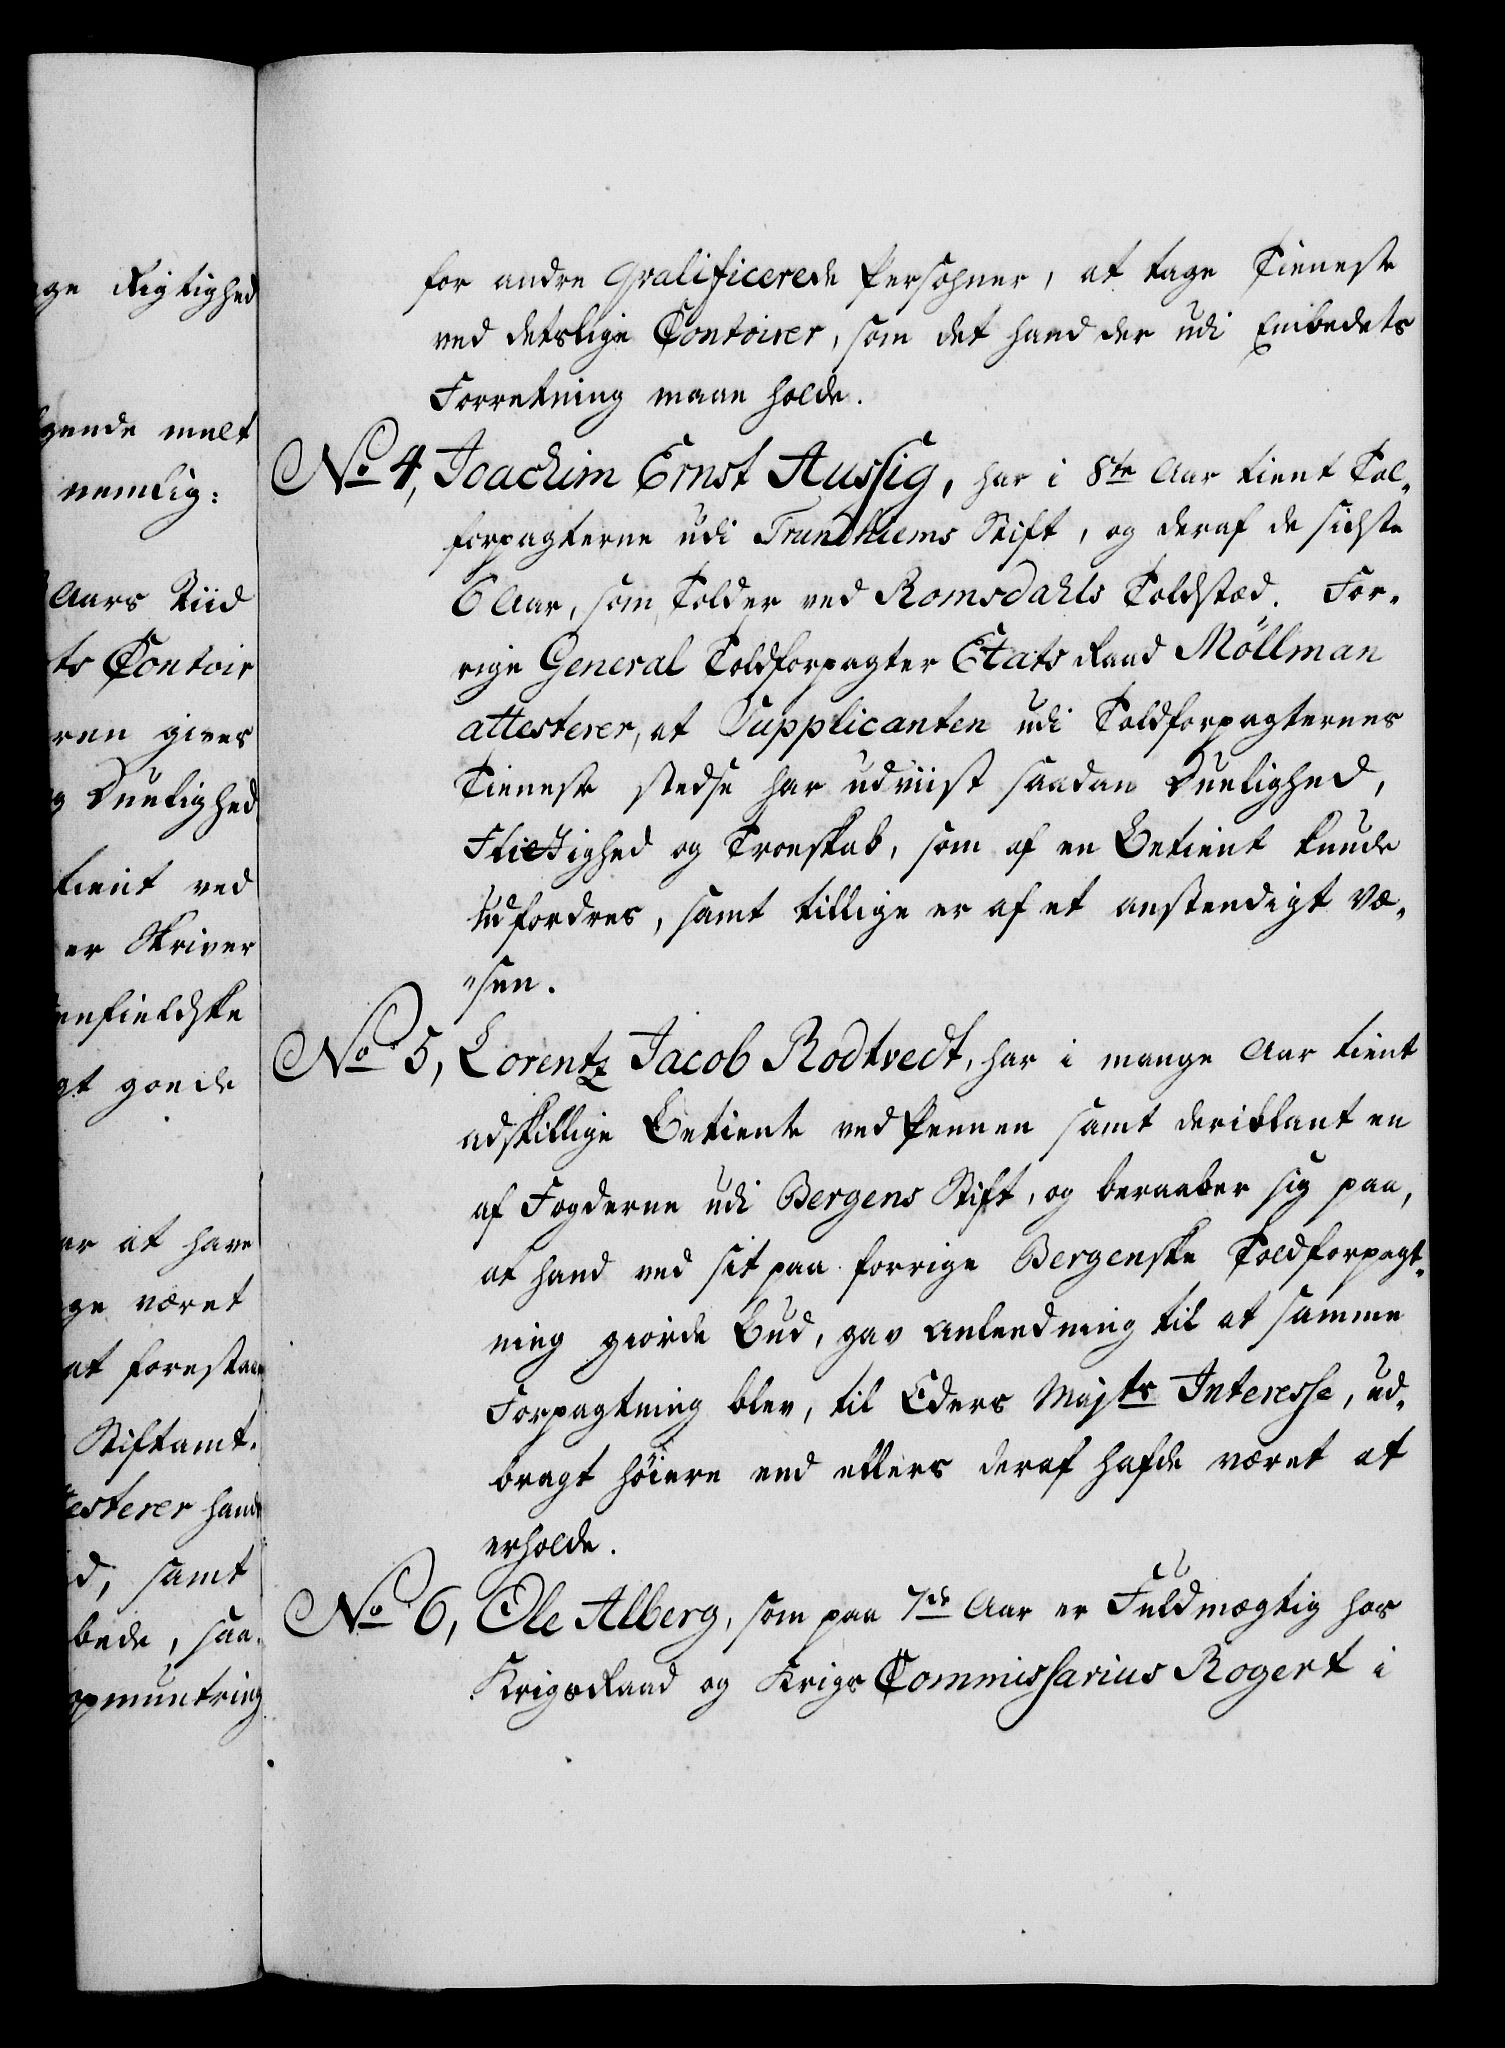 ge Rigtighed
gende melt
nemlig:
Aars Tiid
ts Contoir
ren gives
g Duelighed
tient ved
er Skriver
enfieldske
gt goede
er at have
ge været
at forestaae
Stiftamt-
testerer hande
d, samt
bede, saa-
opmuntring
for andre qvalificerede Persohner, at tage Tieneste
ved deslige Contoirer, som det hand der udi Embedets
Forretning maae holde.
No 4, Joachim Ernst Aussig, har i 8te Aar tient Tol-
forpagterne udi Trundhiems Stift, og deraf de sidste
6 Aar, som Tolder ved Romsdahls Toldstæd. For-
rige General Toldforpagter Etats Raad Möllman
attesterer, at Supplicanten udi Toldforpagternes
Tieneste stedse har udviist saadan Duelighed,
Flittighed og Troeskab, som af en Betient kunde
udfordres, samt tillige er af et anstendigt Væ-
sen.
No 5, Lorentz Jacob Rodtvedt, har i mange Aar tient
adskillige Betiente ved Pennen samt deriblant en
af Fogderne udi Bergens Stift, og beraaber sig paa,
at hand ved sit paa forrige Bergenske Toldforpagt-
ning giorde Bud, gav Anledning til at samme
Forpagtning blev, til Eders Majts Interesse, ud-
bragt höiere end ellers deraf hafde været at
erholde.
No 6, Ole Alberg, som paa 7de Aar er Fuldmægtig hos
KrigsRaad og Krigs Commissarius Rogert i